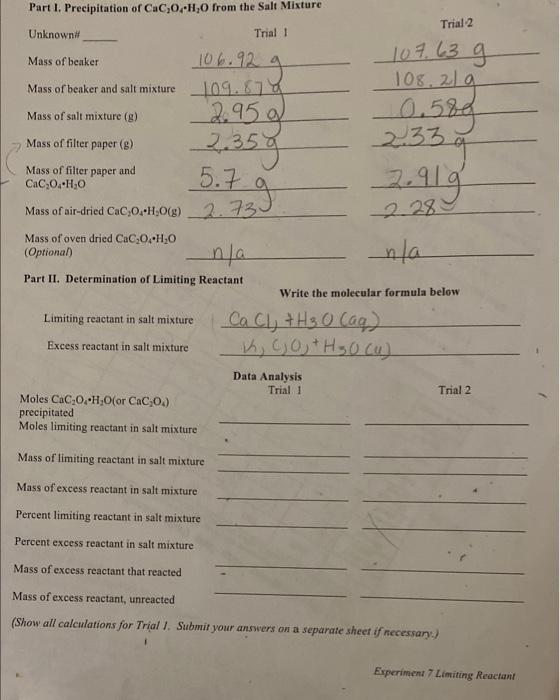 Part I. Precipitation of CaC₂O₄•H₂O from the Salt Mixture
Unknown# ____ Trial 1 Trial 2
Mass of beaker 106.92 g 107.63 g
Mass of beaker and salt mixture 109.87 g 108.21 g
Mass of salt mixture (g) 2.95 g 0.58 g
Mass of filter paper (g) 2.35 g 2.33 g
Mass of filter paper and
CaC₂O₄•H₂O 5.7 g 2.91 g
Mass of air-dried CaC₂O₄•H₂O(g) 2.73 2.28
Mass of oven dried CaC₂O₄•H₂O
(Optional) n/a n/a
Part II. Determination of Limiting Reactant
Write the molecular formula below
Limiting reactant in salt mixture CaCl₂ + H₃O (aq)
Excess reactant in salt mixture
Data Analysis
Trial 1 Trial 2
Moles CaC₂O₄•H₂O(or CaC₂O₄)
precipitated
Moles limiting reactant in salt mixture
Mass of limiting reactant in salt mixture
Mass of excess reactant in salt mixture
Percent limiting reactant in salt mixture
Percent excess reactant in salt mixture
Mass of excess reactant that reacted
Mass of excess reactant, unreacted
(Show all calculations for Trial 1. Submit your answers on a separate sheet if necessary.)
Experiment 7 Limiting Reactant